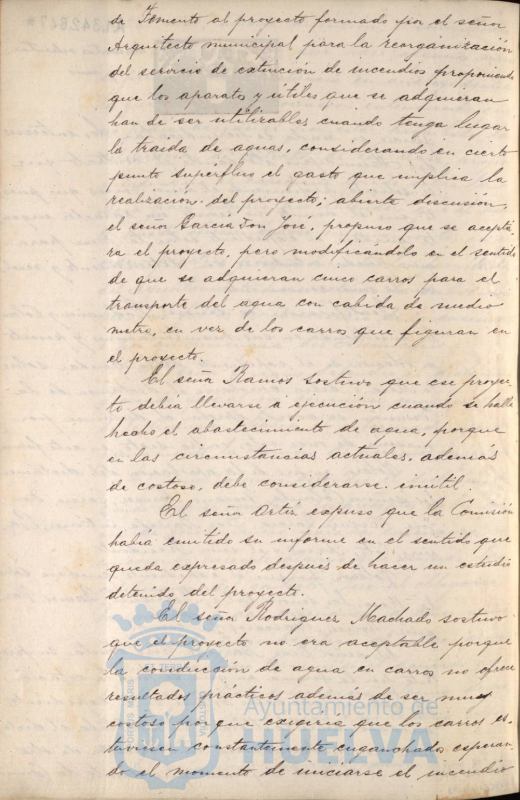 de Fomento al proyecto formado por el señor
Arquitecto municipal para la reorganización
del servicio de extinción de incendios proponiendo
que los aparatos y útiles que se adquieran
han de ser utilizables cuando tenga lugar
la traida de aguas, considerando en cierto
punto superfluo el gasto que implica la
realización del proyecto; abierta discusión,
el señor García Don José, propuso que se acepta-
ra el proyecto, pero modificándolo en el sentido
de que se adquieran cinco carros para el
transporte del agua con cabida de medio
metro, en vez de los carros que figuran en
el proyecto.
El señor Ramos sostuvo que ese proyec-
to debía llevarse á ejecución cuando se halle
hecho el abastecimiento de agua, porque
en las circunstancias actuales, además
de costoso, debe considerarse inútil.
El señor Ortiz expuso que la Comisión
había emitido su informe en el sentido que
queda expresado después de hacer un estudio
detenido del proyecto.
El señor Rodriguez Machado sostuvo
que el proyecto no era aceptable porque
la conducción de agua en carros no ofrece
resultados prácticos además de ser muy
costoso porque exigiria que los carros es-
tuviesen constantemente enganchados esperan-
do el momento de iniciarse el incendio
Ayuntamiento de
HUELVA